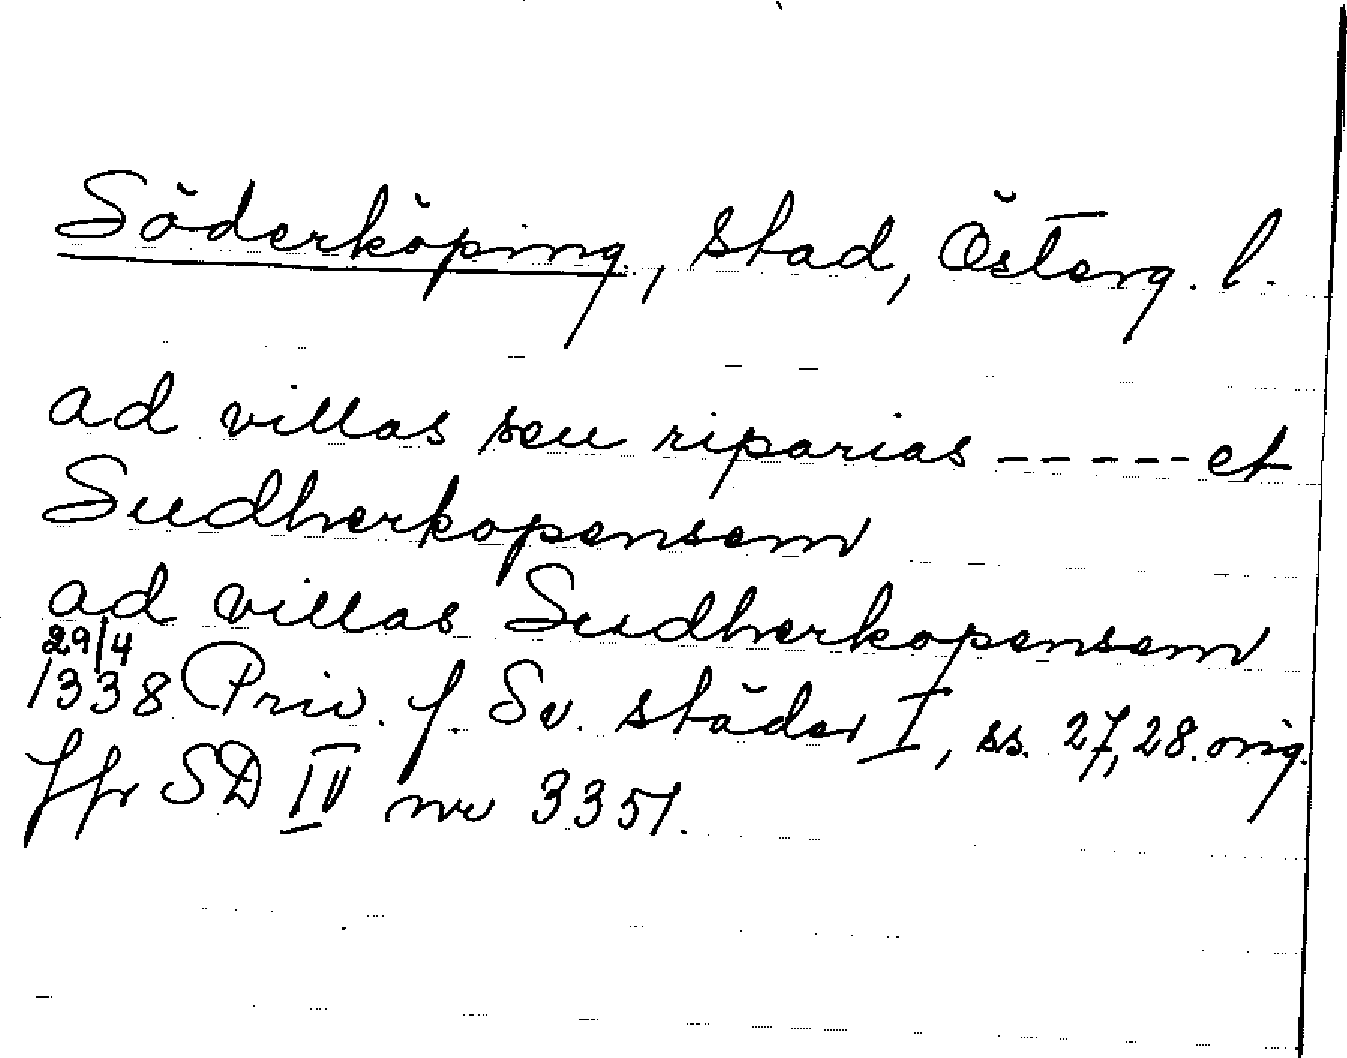 Söderköping, stad, Österg. l.
ad villas seu riparias ----- et
Sudherkopensem
ad villas Sudherkopensem
29/4
1338 Priv. f. Sv. städer I, ss. 27, 28. orig.
Jfr SD IV nr 3351.